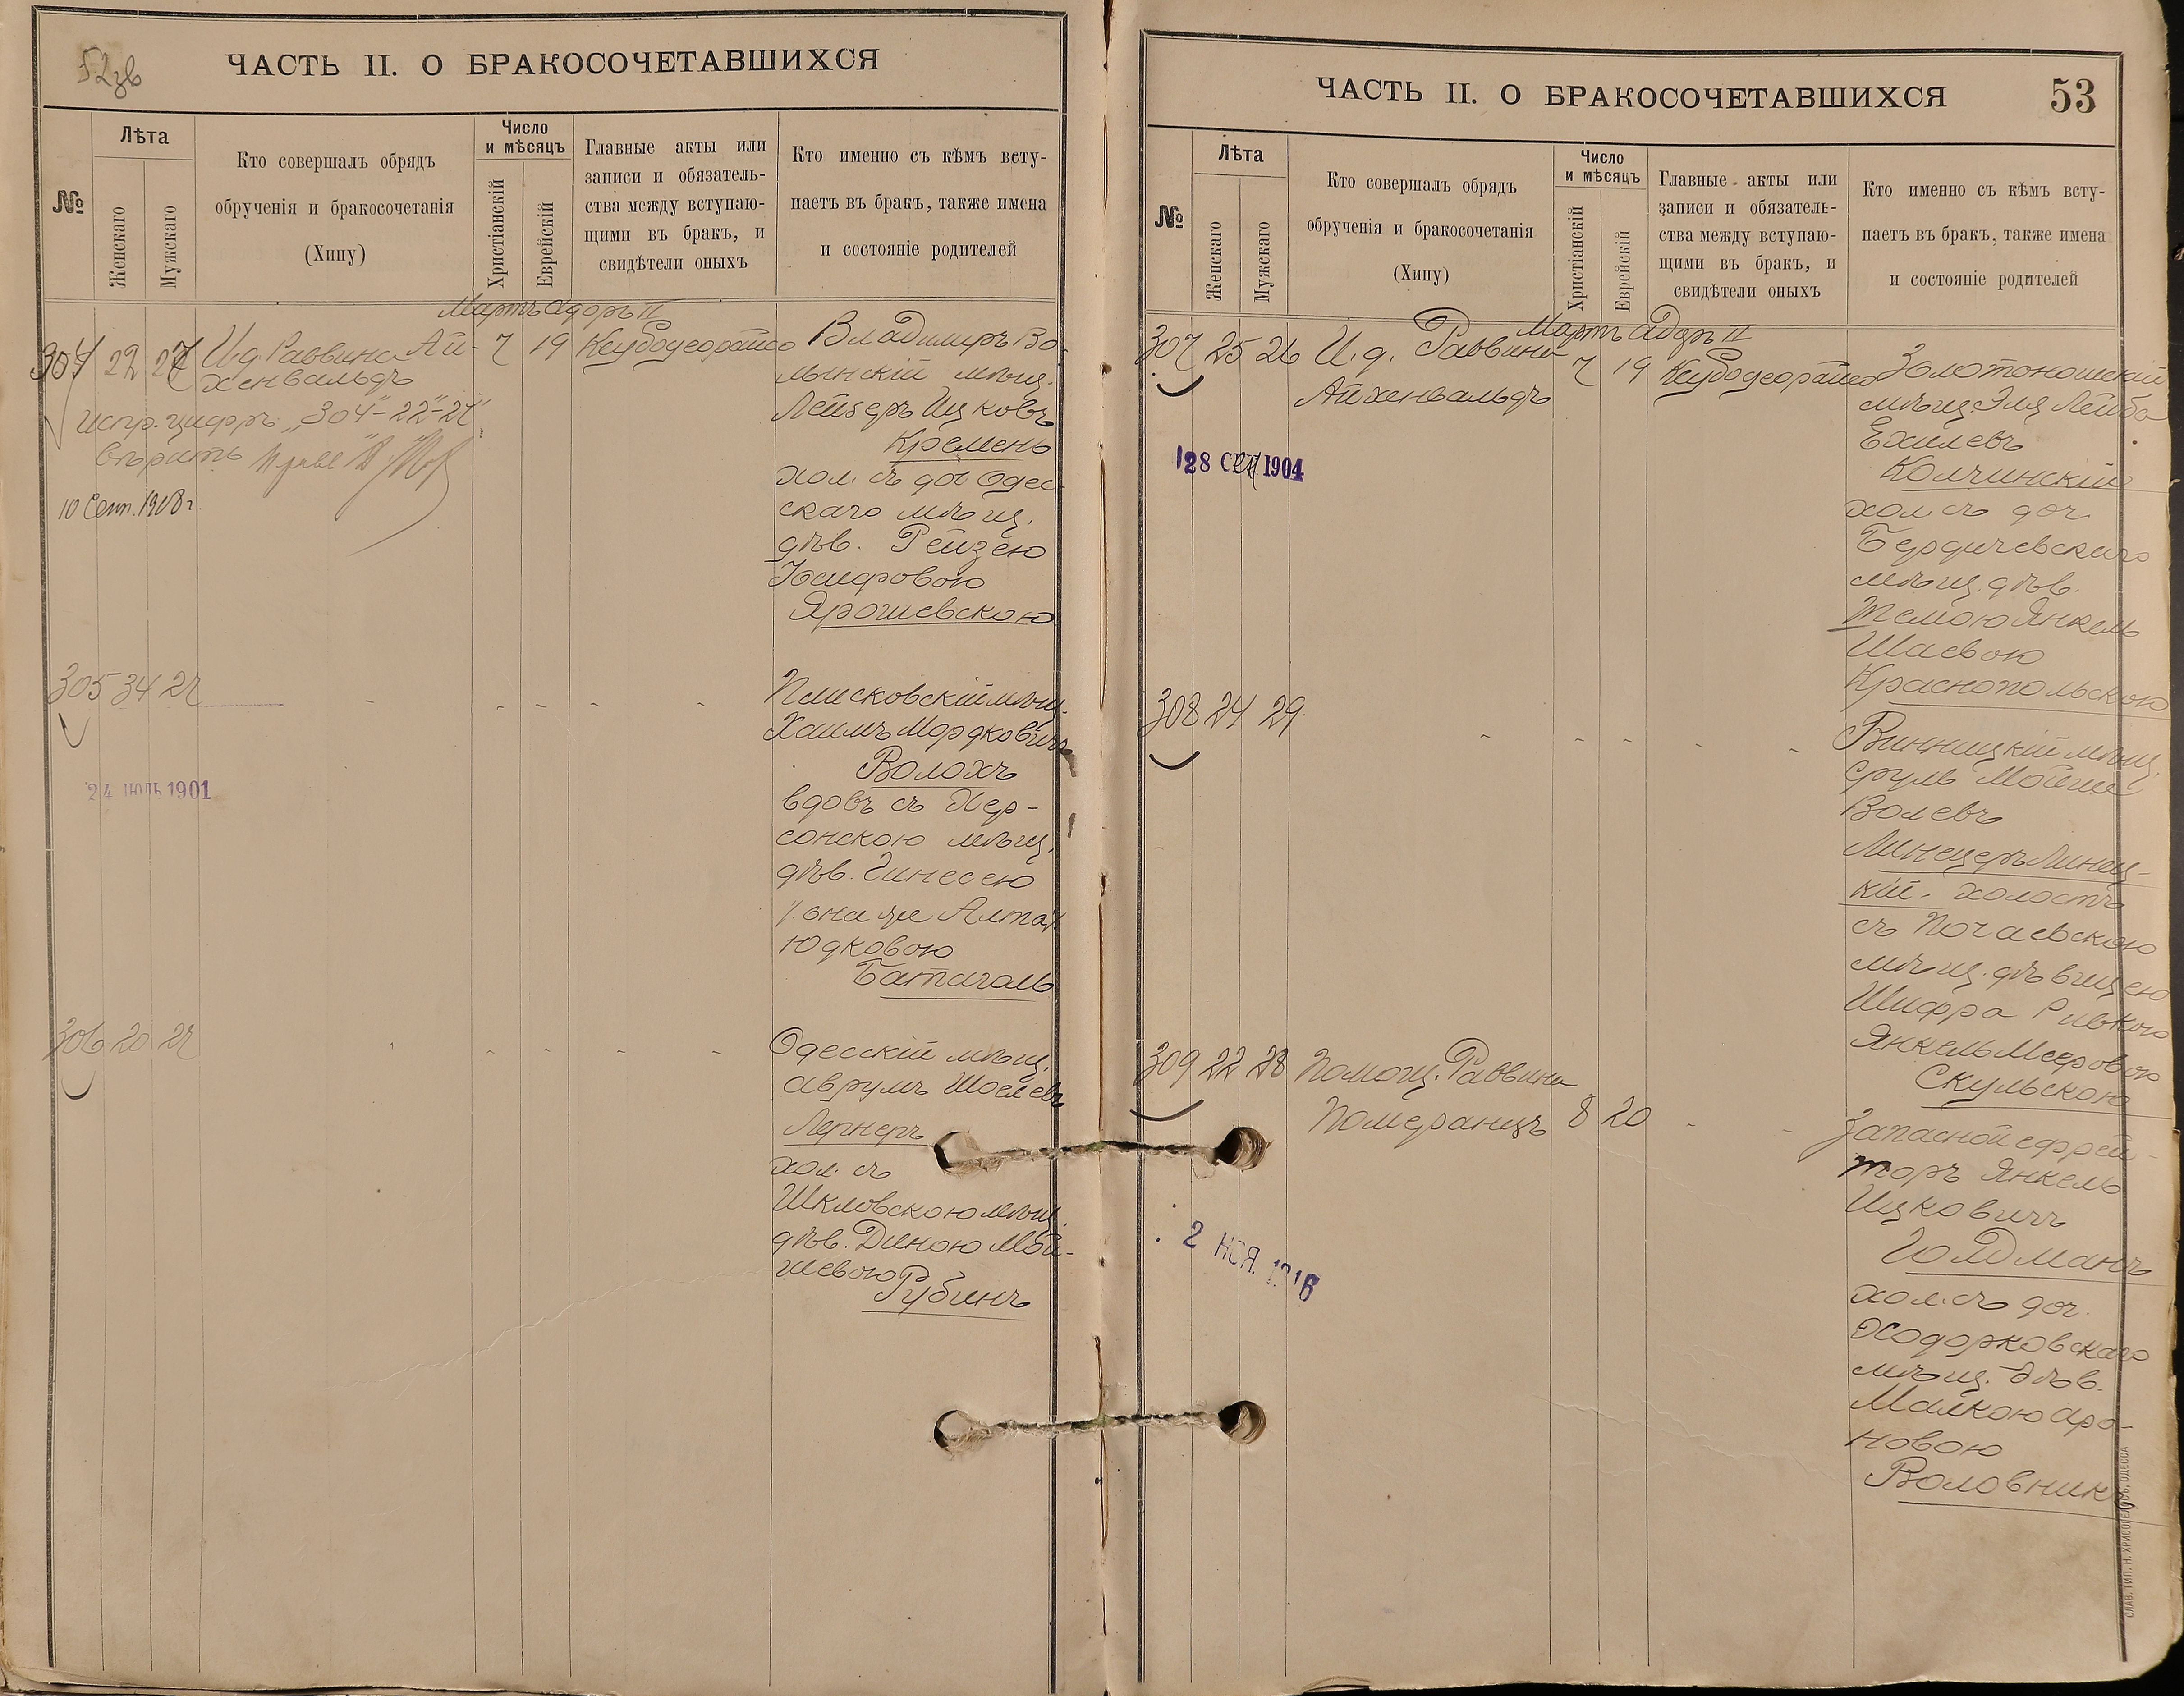 52зв
ЧАСТЬ II. О БРАКОСОЧЕТАВШИХСЯ
№
Лѣта
Женскаго
Мужскаго
Кто совершалъ обрядъ
обрученія и бракосочетанія
(Хипу)
Число
и мѣсяцъ
Христіанскій
Еврейскій
Главные акты или
записи и обязатель-
ства между вступаю-
щими въ бракъ, и
свидѣтели оныхъ
Кто именно съ кѣмъ всту-
паетъ въ бракъ, также имена
и состояніе родителей
Мартъ Адоръ II
304 22 27 И.д. Раввина Ай-
хенвальдъ
7 19 Ксубодеорайсо
испр. цифръ „304"-22"-27"
вѣрить
10 Сент. 1908 г.
Владимиръ Во
лынскій мѣщ.
Лейзеръ Ицковъ
Кремень
хол. съ доч Одес
скаго мѣщ.
дѣв. Рейзею
Юсифовою
Ярошевскою
305 34 27
24 ІЮЛЬ 1901
Плисковскій мѣщ.
Хаимъ Мордковичъ
Волохъ
вдовъ съ Хер-
сонскою мѣщ.
дѣв. Гинесею
/она же Алта/
Юдковою
Батагаль
306 20 27
Одесскій мѣщ.
Аврумъ Шоелевъ
Лернеръ
хол. съ
Шкловскою мѣщ.
дѣв. Диною Мой-
шевою
Рубинъ
ЧАСТЬ II. О БРАКОСОЧЕТАВШИХСЯ
53
№
Лѣта
Женскаго
Мужскаго
Кто совершалъ обрядъ
обрученія и бракосочетанія
(Хипу)
Число
и мѣсяцъ
Христіанскій
Еврейскій
Главные акты или
записи и обязатель-
ства между вступаю-
щими въ бракъ, и
свидѣтели оныхъ
Кто именно съ кѣмъ всту-
паетъ въ бракъ, также имена
и состояніе родителей
Мартъ Адоръ II
307 25 26 И.д. Раввина
Айхенвальдъ
7 19 Ксубодеорайсо
28 СЕН 1904
Золотоношскій
мѣщ. Эля Лейба
Ехилевъ
Колчинскій
хол. съ доч.
Бердичевскаго
мѣщ. дѣв.
Темою Янкель
Шаевою
Краснопольскою
308 24 29
Винницкій мѣщ.
Сруль Мойше
Волевъ
Линецеръ Линец-
кій. холостъ
съ Почаевскою
мѣщ. дѣвицею
Шифра Ривкою
Янкель Мееровою
Скульскою
309 22 28 Помощ. Раввина
Померанцъ 8 20
2 НОЯ. 1916
Запасной ефрей-
торъ Янкель
Ицковичъ
Голдманъ
хол. съ доч.
Ходорковскаго
мѣщ. дѣв.
Малкою Аро-
новою
Воловникъ
СЛАВ. ТИП. Н. ХРИСОГЕЛОСЪ, ОДЕССА